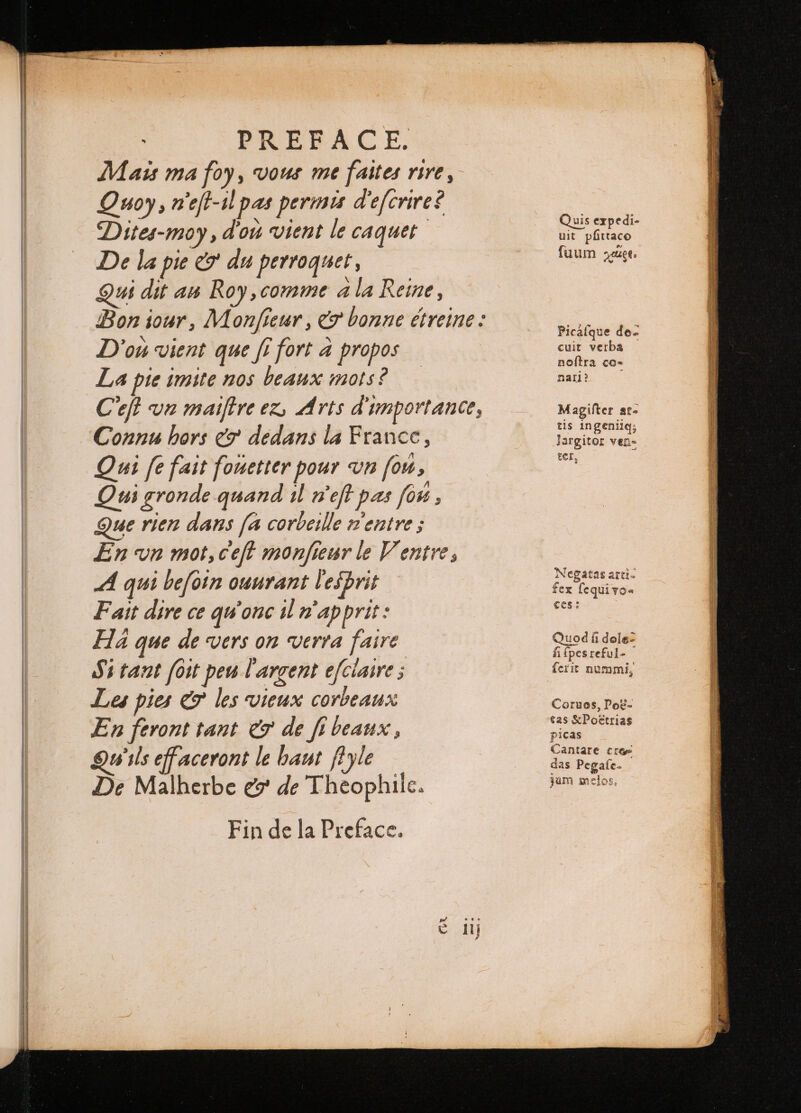 PREFACE.
Mais ma foy, vous me faites rire,
Quoy, n'eſt-il pas permis d'eſcrire?
Dites-moy, d'où vient le caquet
De la pie & du perroquet,
Qui dit au Roy, comme à la Reine,
Bon iour, Monſieur, & bonne étreine:
D'où vient que ſi fort à propos
La pie imite nos beaux mots?
C'eſt vn maiſtre ez, Arts d'importance,
Connu hors & dedans la France,
Qui ſe fait foüetter pour vn ſou,
Qui gronde quand il n'eſt pas ſoû,
Que rien dans ſa corbeille n'entre;
En vn mot, c'eſt monſieur le Ventre,
A qui beſoin ouurant l'eſprit
Fait dire ce qu'onc il n'apprit:
Hà que de vers on verra faire
Si tant ſoit peu l'argent eſclaire;
Les pies & les vieux corbeaux
En feront tant & de ſi beaux,
Qu'ils effaceront le haut ſtyle
De Malherbe & de Theophile.
Fin de la Preface.
é iij
Quis expedi-
uit pſittaco
ſuum χαῖρε.
Picáſque do-
cuit verba
noſtra co-
nari?
Magiſter ar-
tis ingeniiq;
largitor ven-
ter,
Negatas arti-
fex ſequi vo-
ces:
Quod ſi dole-
ſi ſpes reful-
ſerit nummi,
Coruos, Poë-
tas & Poëtrias
picas
Cantare cre-
das Pegaſe-
jum melos.